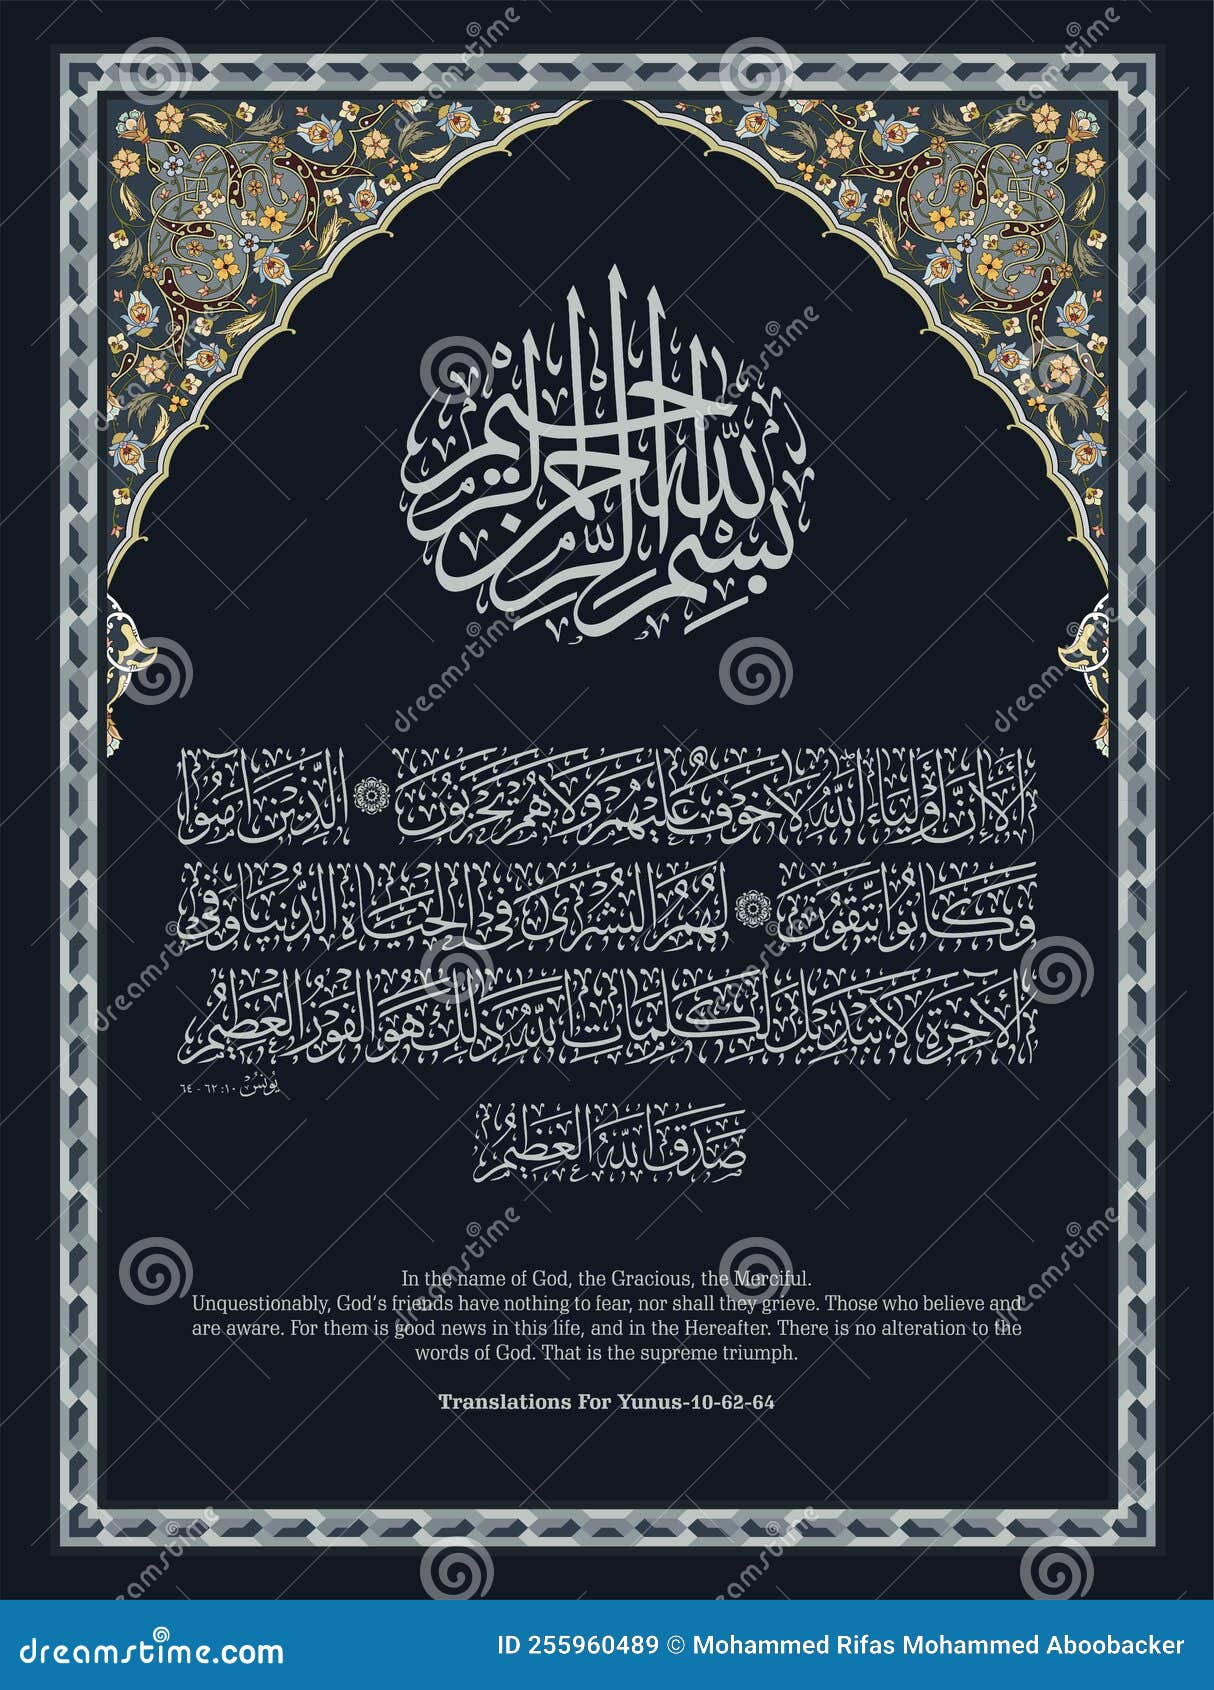 بسم الله الرحمن الرحيم
أَلَا إِنَّ أَوْلِيَاءَ اللَّهِ لَا خَوْفٌ عَلَيْهِمْ وَلَا هُمْ يَحْزَنُونَ ۞ الَّذِينَ آمَنُوا
وَكَانُوا يَتَّقُونَ ۞ لَهُمُ الْبُشْرَىٰ فِي الْحَيَاةِ الدُّنْيَا وَفِي
الْآخِرَةِ لَا تَبْدِيلَ لِكَلِمَاتِ اللَّهِ ذَٰلِكَ هُوَ الْفَوْزُ الْعَظِيمُ
يُونُسُ ١٠: ٦٢ - ٦٤
صَدَقَ اللَّهُ الْعَظِيمُ
In the name of God, the Gracious, the Merciful.
Unquestionably, God's friends have nothing to fear, nor shall they grieve. Those who believe and
are aware. For them is good news in this life, and in the Hereafter. There is no alteration to the
words of God. That is the supreme triumph.
Translations For Yunus-10-62-64
dreamstime.com
ID 255960489 © Mohammed Rifas Mohammed Aboobacker